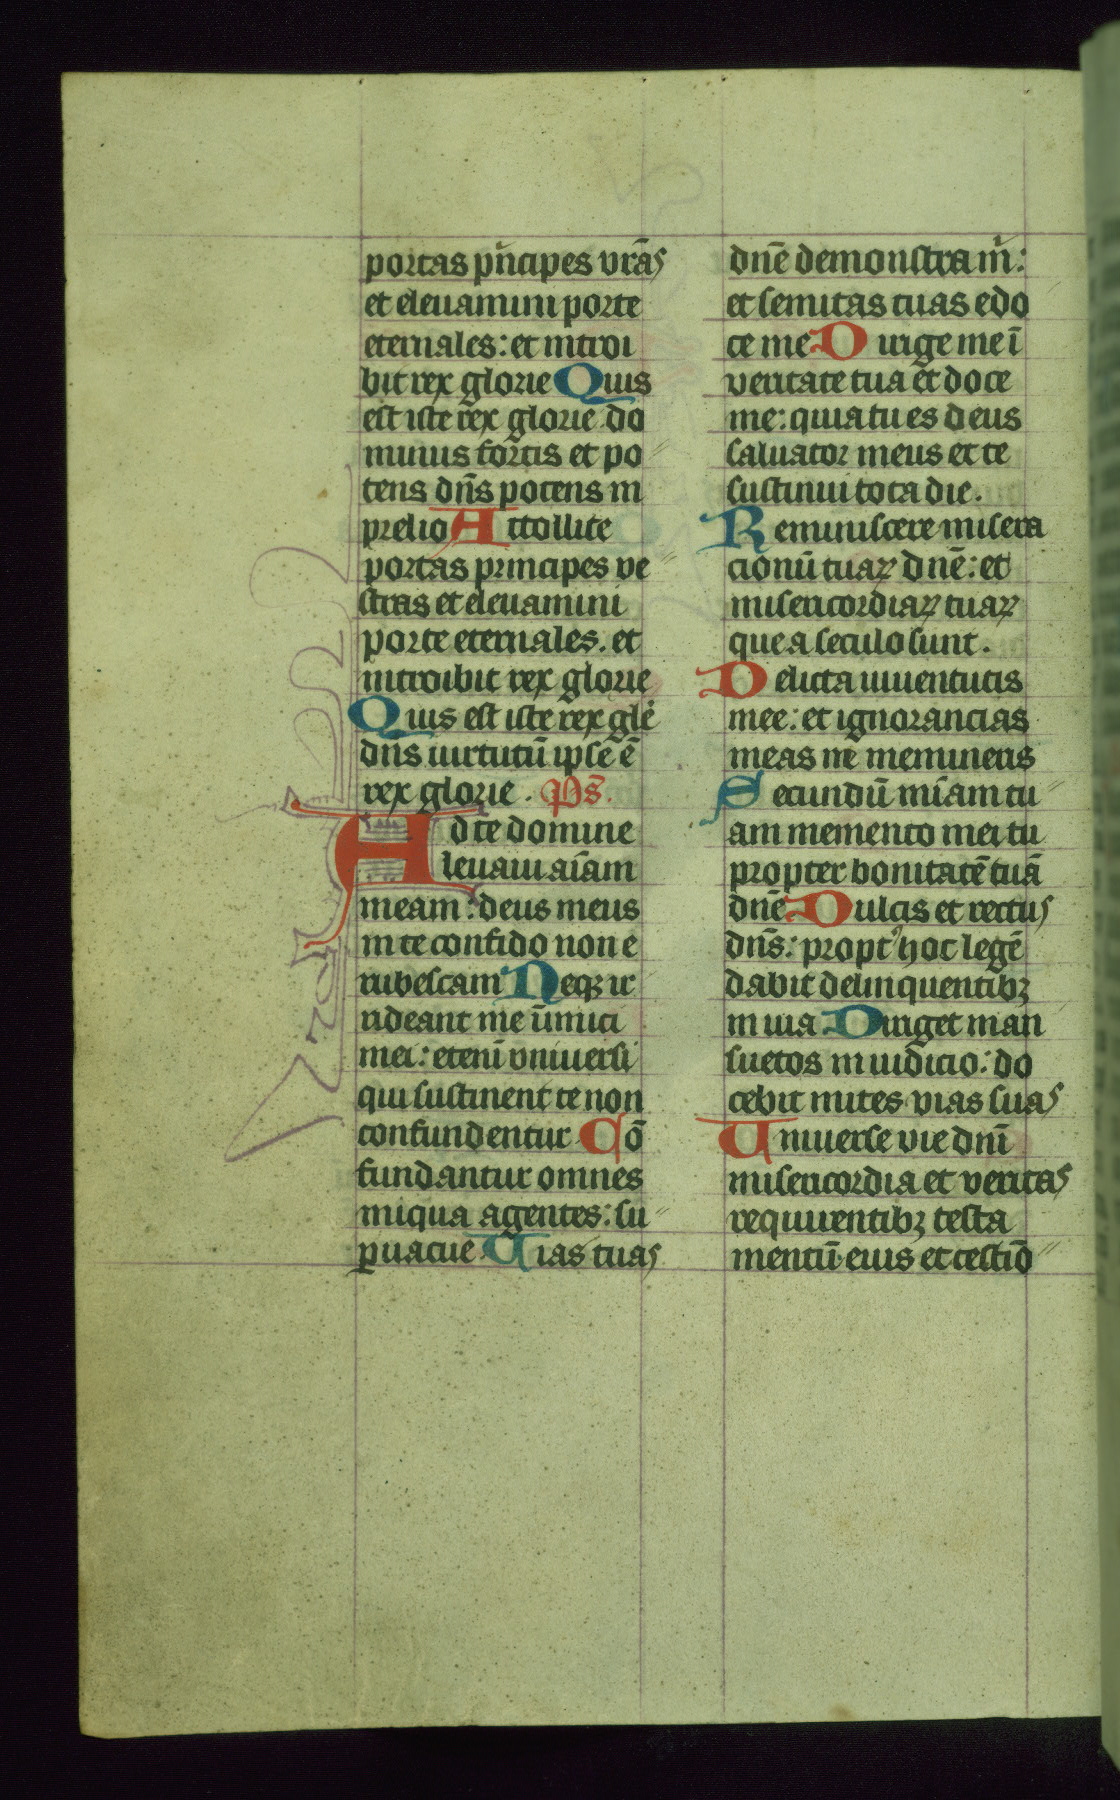 portas pͥncipes vr̄as
et eleuamini porte
eternales: et introi
bit rex glorie Quis
est iste rex glorie do
minus fortis et po
tens dn̄s potens in
prelio Attollite
portas principes ve
stras et eleuamini
porte eternales. et
introibit rex glorie
Quis est iste rex glē
dn̄s uirtutū ipse ē
rex glorie. Ps̄.
Ad te domine
leuaui aīam
meam: deus meus
in te confido non e
rubescam Neqꝫ ir
rideant me īimici
mei: etenī vniuersi
qui sustinent te non
confundentur Cō
fundantur omnes
iniqua agentes: su
ꝑuacue Uias tuas
dn̄e demonstra mͥ:
et semitas tuas edo
ce me Dirige me ī
veritate tua et doce
me: quia tu es deus
saluator meus et te
sustinui tota die.
Reminiscere misera
cionū tuaꝝ dn̄e: et
misericordiaꝝ tuaꝝ
que a seculo sunt.
Delicta iuuentutis
mee: et ignorancias
meas ne memineris
Secundū mīam tu
am memento mei tu
propter bonitatē tuā
dn̄e Dulcis et rectus
dn̄s: propt᾽ hoc legē
dabit delinquentibꝫ
in uia Diriget man
suetos in iudicio: do
cebit mites vias suas
Uniuerse vie dn̄i
misericordia et veritas
requirentibꝫ testa
mentū eius et testīo